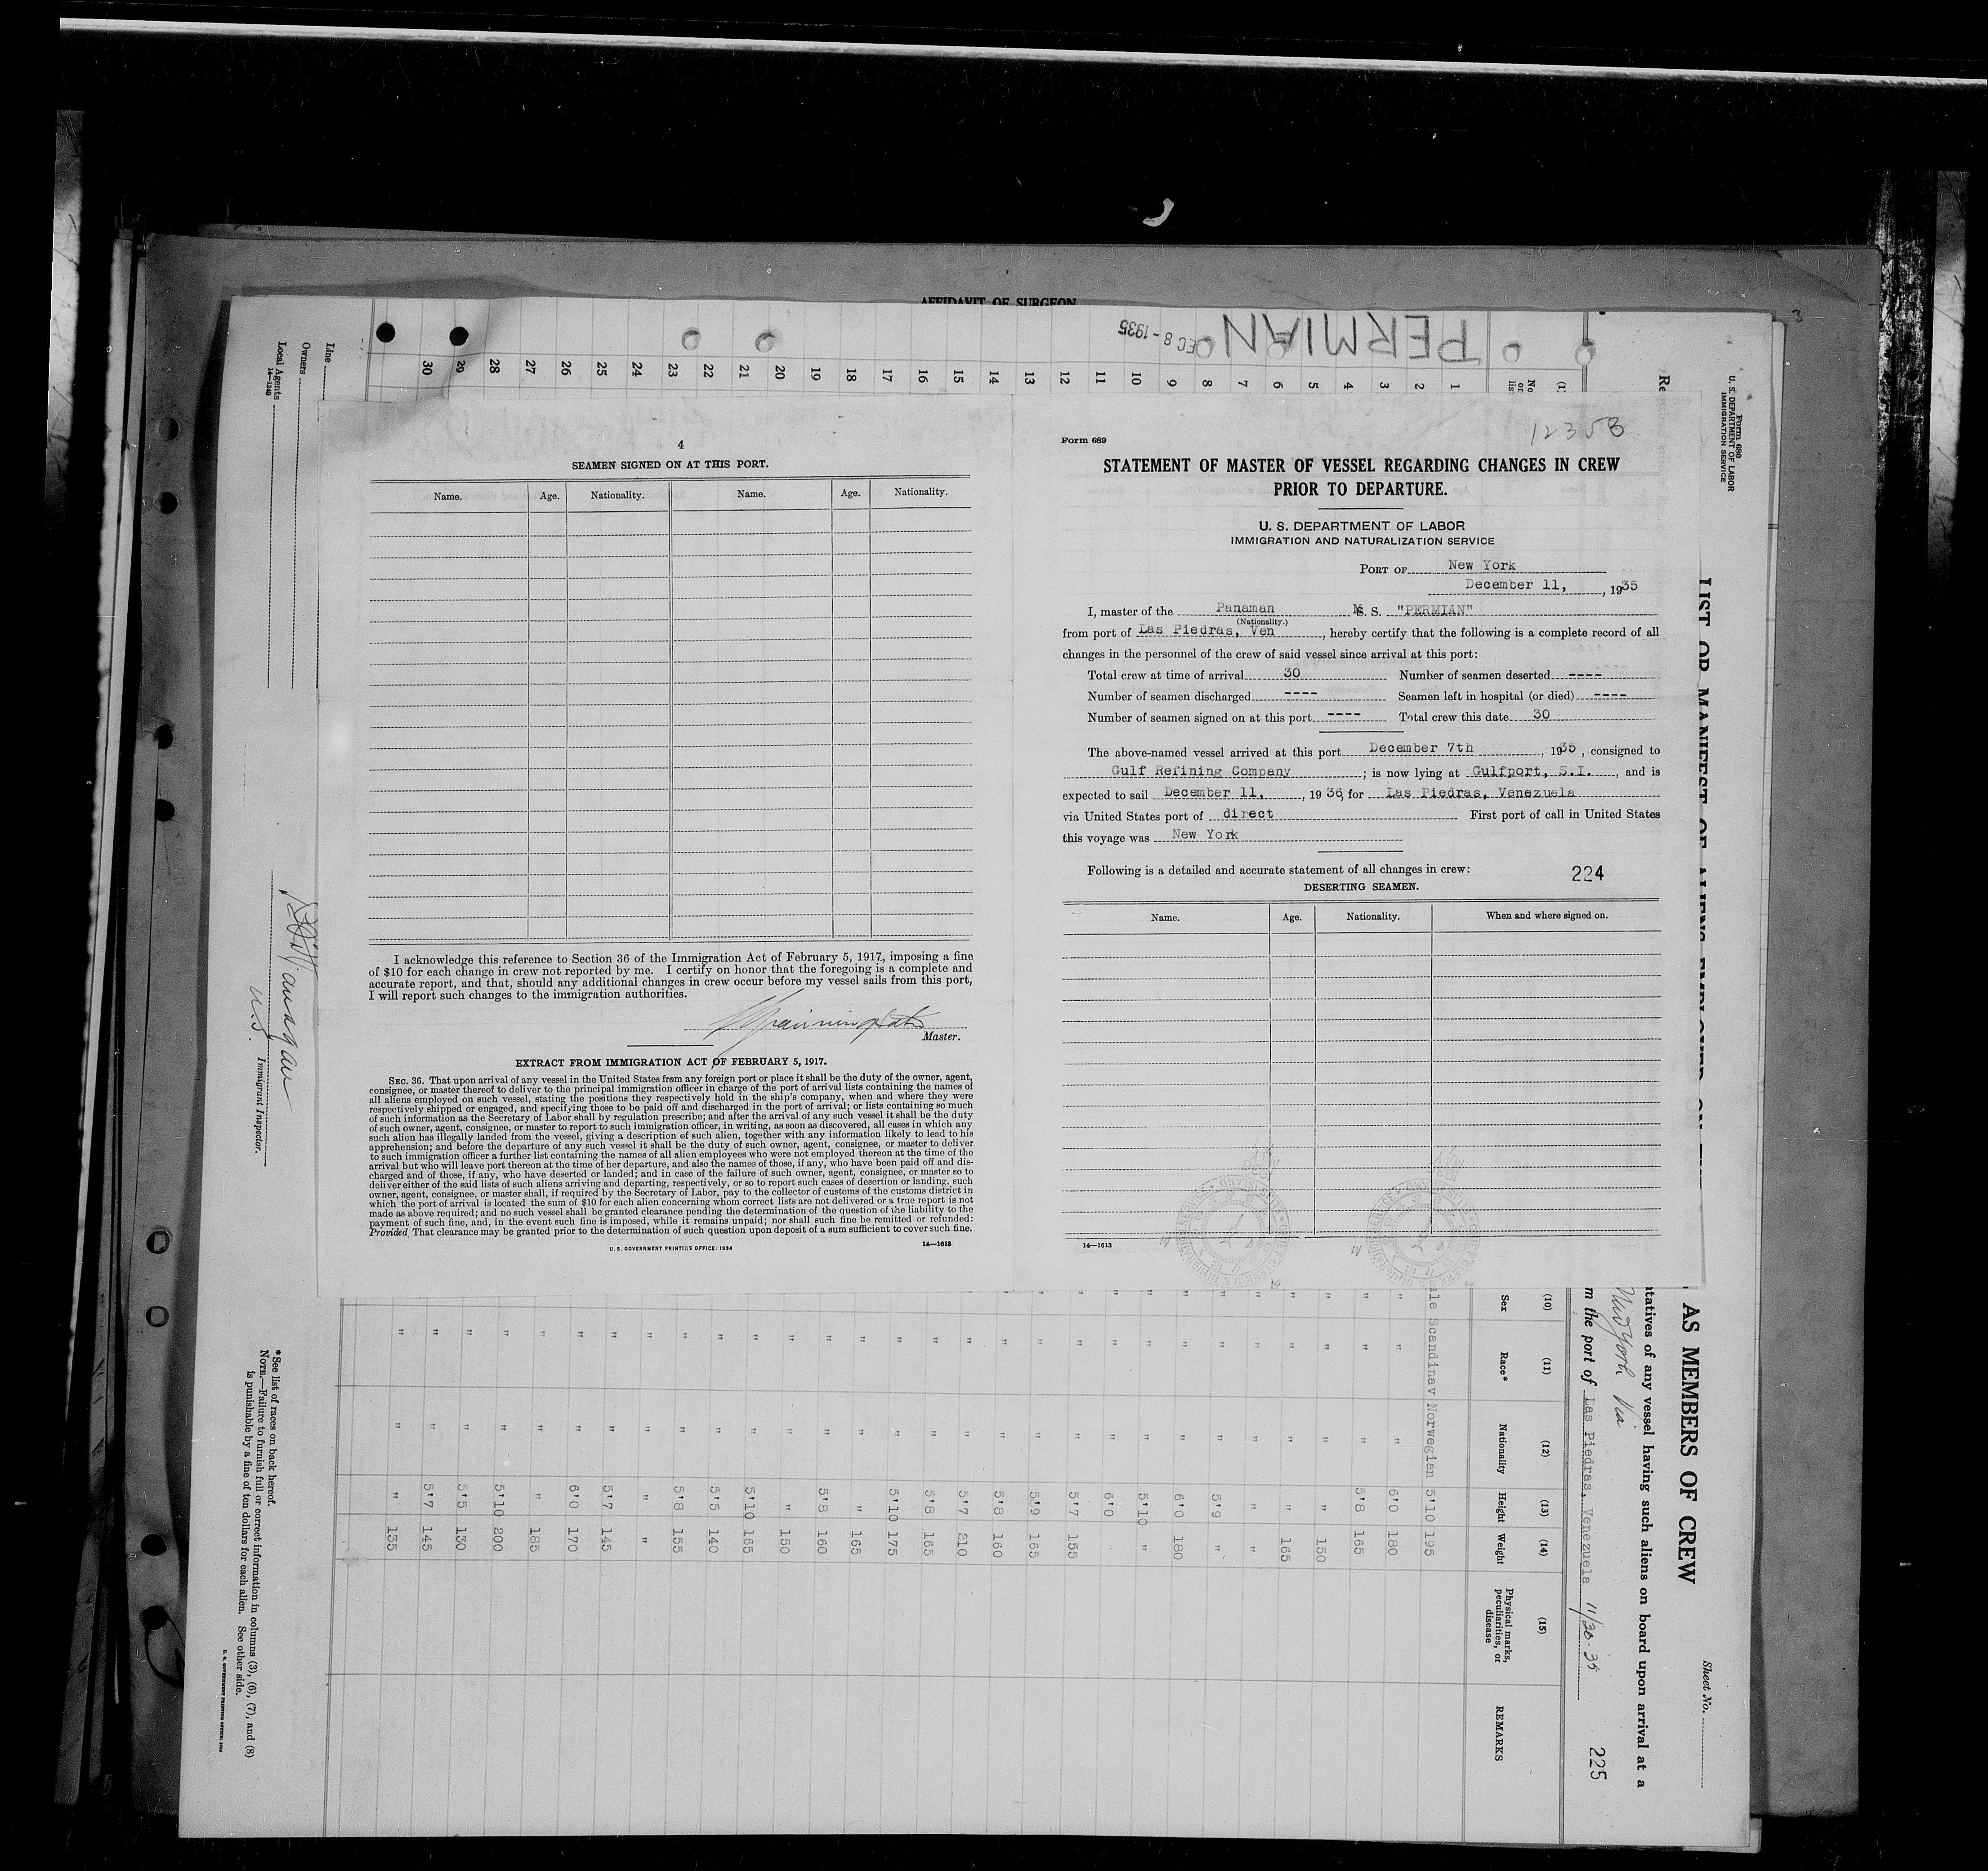 AFFIDAVIT OF SURGEON
3
PERMIAN
EC 8 - 1935
4
SEAMEN SIGNED ON AT THIS PORT.
Name. Age. Nationality. Name. Age. Nationality.
I acknowledge this reference to Section 36 of the Immigration Act of February 5, 1917, imposing a fine
of $10 for each change in crew not reported by me. I certify on honor that the foregoing is a complete and
accurate report, and that, should any additional changes in crew occur before my vessel sails from this port,
I will report such changes to the immigration authorities.
Master.
EXTRACT FROM IMMIGRATION ACT OF FEBRUARY 5, 1917.
SEC. 36. That upon arrival of any vessel in the United States from any foreign port or place it shall be the duty of the owner, agent,
consignee, or master thereof to deliver to the principal immigration officer in charge of the port of arrival lists containing the names of
all aliens employed on such vessel, stating the positions they respectively hold in the ship's company, when and where they were
respectively shipped or engaged, and specifying those to be paid off and discharged in the port of arrival; or lists containing so much
of such information as the Secretary of Labor shall by regulation prescribe; and after the arrival of any such vessel it shall be the duty
of such owner, agent, consignee, or master to report to such immigration officer, in writing, as soon as discovered, all cases in which any
such alien has illegally landed from the vessel, giving a description of such alien, together with any information likely to lead to his
apprehension; and before the departure of any such vessel it shall be the duty of such owner, agent, consignee, or master to deliver
to such immigration officer a further list containing the names of all alien employees who were not employed thereon at the time of the
arrival but who will leave port thereon at the time of her departure, and also the names of those, if any, who have been paid off and dis-
charged and of those, if any, who have deserted or landed; and in case of the failure of such owner, agent, consignee, or master so to
deliver either of the said lists of such aliens arriving and departing, respectively, or so to report such cases of desertion or landing, such
owner, agent, consignee, or master shall, if required by the Secretary of Labor, pay to the collector of customs of the customs district in
which the port of arrival is located the sum of $10 for each alien concerning whom correct lists are not delivered or a true report is not
made as above required; and no such vessel shall be granted clearance pending the determination of the question of the liability to the
payment of such fine, and, in the event such fine is imposed, while it remains unpaid; nor shall such fine be remitted or refunded:
Provided, That clearance may be granted prior to the determination of such question upon deposit of a sum sufficient to cover such fine.
U. S. GOVERNMENT PRINTING OFFICE: 1934 14—1613
12353
Form 689
STATEMENT OF MASTER OF VESSEL REGARDING CHANGES IN CREW
PRIOR TO DEPARTURE.
U. S. DEPARTMENT OF LABOR
IMMIGRATION AND NATURALIZATION SERVICE
PORT OF New York
December 11, , 1935
I, master of the Panaman M. S. "PERMIAN"
(Nationality.)
from port of Las Piedras, Ven , hereby certify that the following is a complete record of all
changes in the personnel of the crew of said vessel since arrival at this port:
Total crew at time of arrival 30 Number of seamen deserted ----
Number of seamen discharged ---- Seamen left in hospital (or died) ----
Number of seamen signed on at this port ---- Total crew this date 30
The above-named vessel arrived at this port December 7th , 1935 , consigned to
Gulf Refining Company ; is now lying at Gulfport, S.I. , and is
expected to sail December 11, , 1936, for Las Piedras, Venezuela
via United States port of direct First port of call in United States
this voyage was New York
Following is a detailed and accurate statement of all changes in crew: 224
DESERTING SEAMEN.
Name. Age. Nationality. When and where signed on.
14—1613
Form 680
U. S. DEPARTMENT OF LABOR
IMMIGRATION SERVICE
Re
LIST OR MANIFEST OF ALIENS EMPLOYED ON
AS MEMBERS OF CREW
Sheet No.
tatives of any vessel having such aliens on board upon arrival at a
New York Via
m the port of Las Piedras, Venezuela 11/30.35
225
(1) (10) (11) (12) (13) (14) (15)
No. on list Sex Race* Nationality Height Weight Physical marks, peculiarities, or disease REMARKS
1 ale Scandinav Norwegian 5'10 195
2 " " " 6'0 180
3 " " " 5'8 165
4 " " " " 150
5 " " " " 165
6 " " " " "
7 " " " 5'9 "
8 " " " 6'0 180
9 " " " 5'10 "
10 " " " 6'0 "
11 " " " 5'7 155
12 " " " 5'9 165
13 " " 5'8 160
14 " " 5'7 210
15 " " 5'8 165
16 " " 5'10 175
17 " " " 165
18 " " 5'8 160
19 " " " 150
20 " " 5'10 165
21 " " 5'5 140
22 " " 5'8 155
23 " " " "
24 " " 5'7 145
25 " " 6'0 170
26 " " " 185
27 " " 5'10 200
28 " " 5'5 130
29 " " 5'7 145
30 " " " 135
Line
Owners
Local Agents
14—1240
U.S. Immigrant Inspector.
*See list of races on back hereof.
NOTE.—Failure to furnish full or correct information in columns (3), (6), (7), and (8)
is punishable by a fine of ten dollars for each alien. See other side.